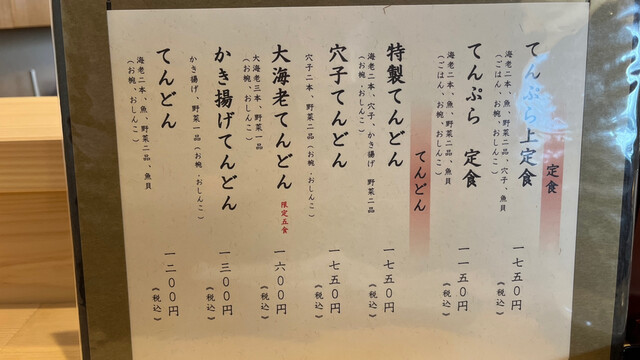 定食
てんぷら上定食
海老二本、魚、野菜二品、穴子、魚貝
(ごはん、お椀、おしんこ)
一七五〇円
(税込)
てんぷら 定食
海老二本、魚、野菜二品、魚貝
(ごはん、お椀、おしんこ)
一一五〇円
(税込)
てんどん
特製てんどん
海老二本、穴子、かき揚げ 野菜二品
(お椀、おしんこ)
一七五〇円
(税込)
穴子てんどん
穴子二本、野菜二品(お椀、おしんこ)
一七五〇円
(税込)
大海老てんどん 限定五食
大海老三本、野菜一品
(お椀、おしんこ)
一六〇〇円
(税込)
かき揚げてんどん
かき揚げ、野菜一品(お椀、おしんこ)
一三〇〇円
(税込)
てんどん
海老二本、魚、野菜二品、魚貝
(お椀、おしんこ)
一二〇〇円
(税込)